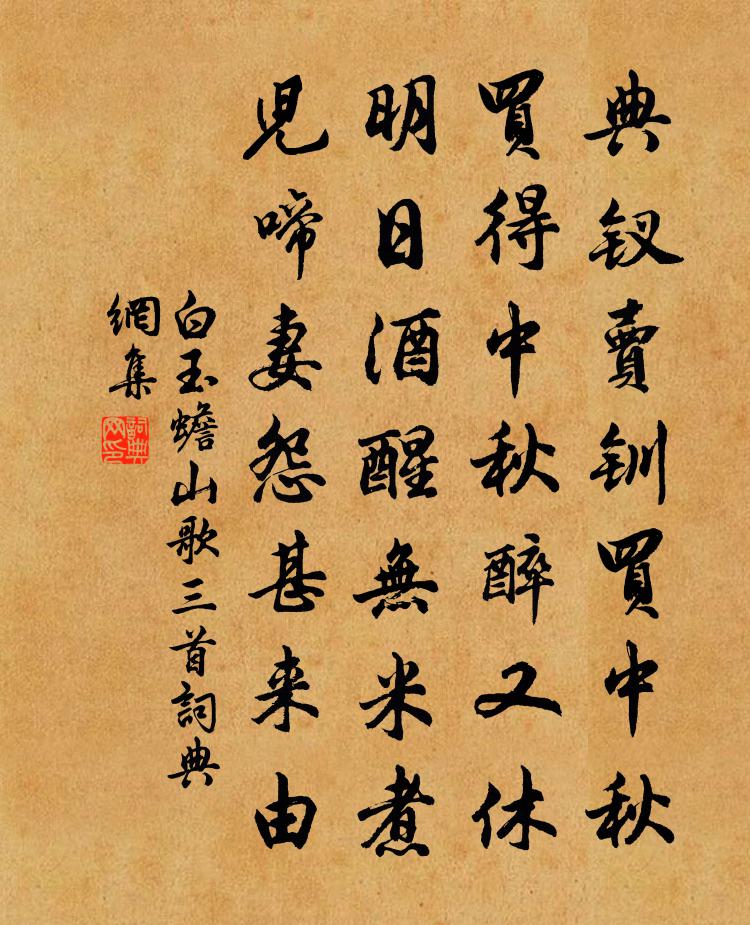 典钗賣钏買中秋
買得中秋醉又休
明日酒醒無米煮
児啼妻怨甚来由
白玉蟾山歌三首詞典
網集
詞典
网印